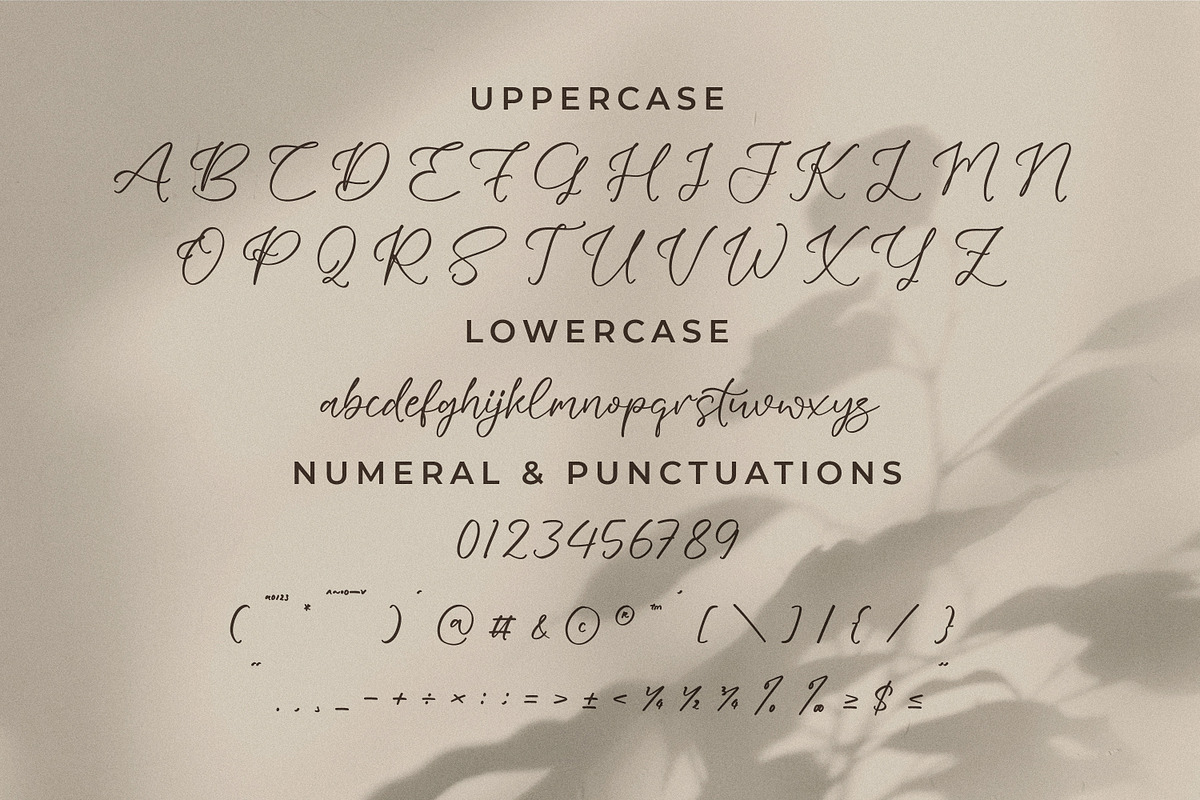 UPPERCASE
A B C D E F G H I J K L M N
O P Q R S T U V W X Y Z
LOWERCASE
abcdefghijklmnopqrstuvwxyz
NUMERAL & PUNCTUATIONS
0123456789
( * ) @ # & © ® ™ [ \ ] | { / }
. , ; _ - + ÷ × : ; = > ± < ¼ ½ ¾ % ‰ ≥ $ ≤